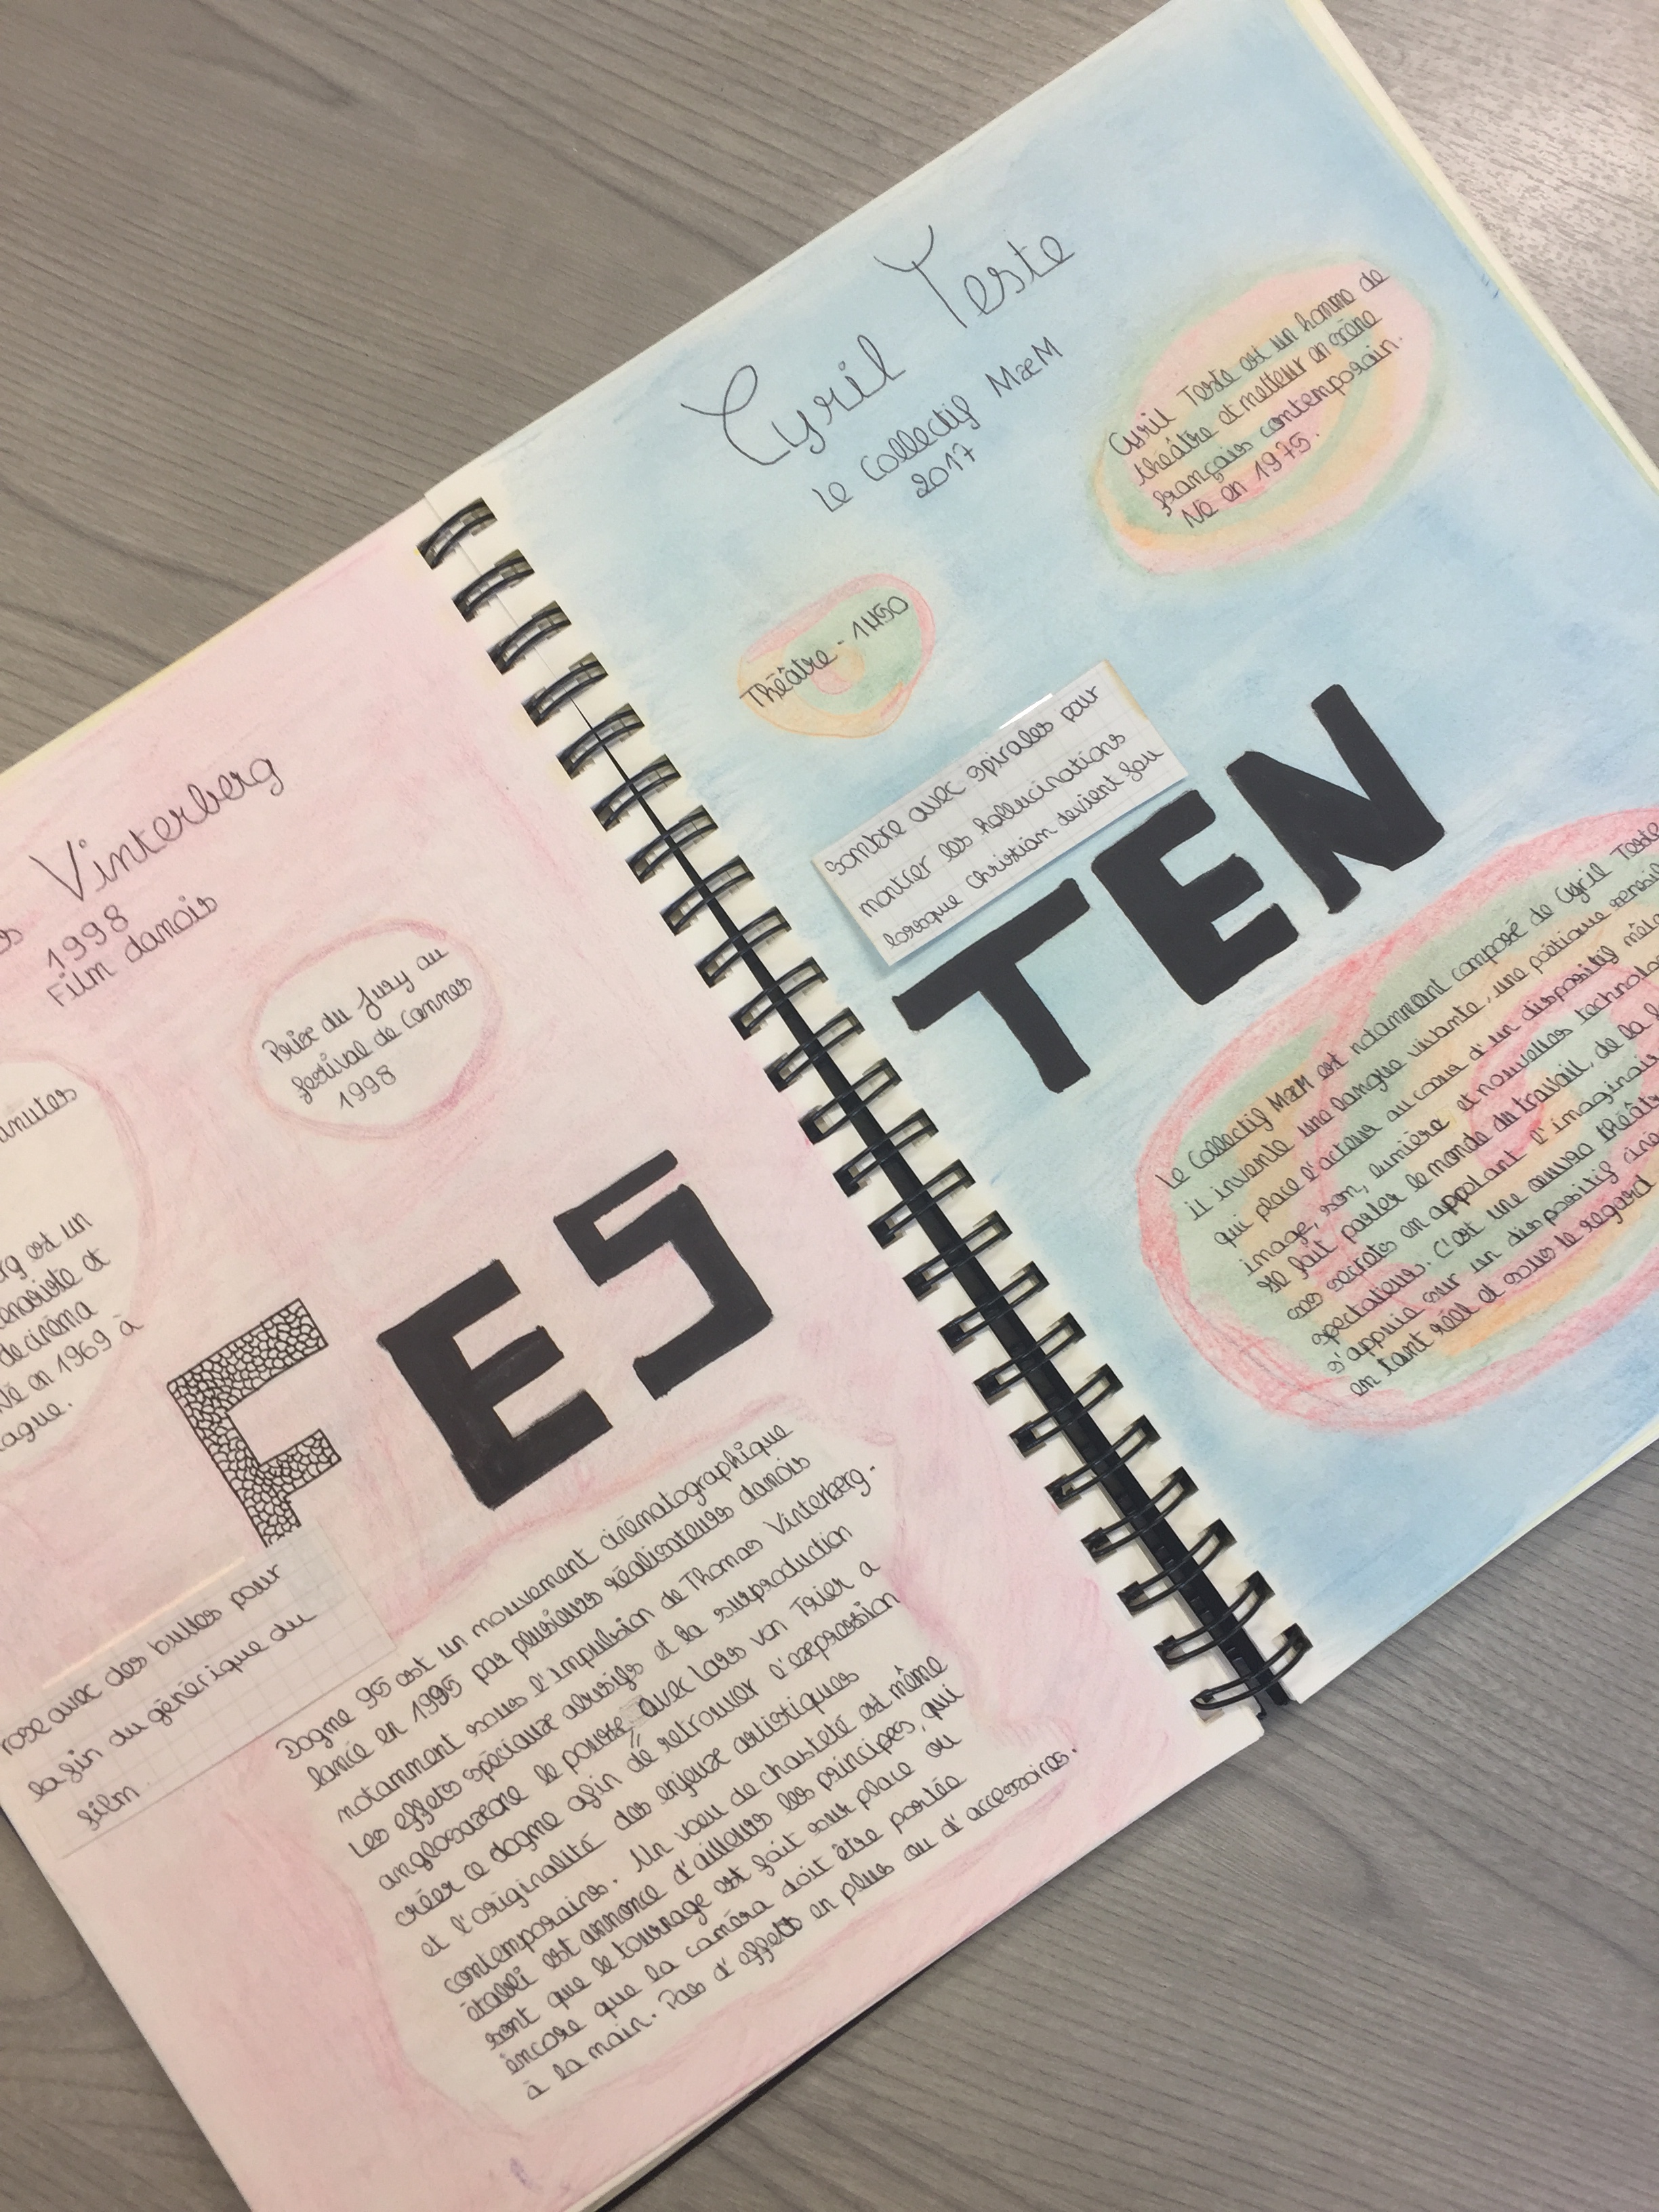 Vinterberg
1998
Film danois
Prix du Jury au
festival de Cannes
1998
est un
de cinéma
Né en 1969 à
FES
rose avec des bulles pour
la fin du générique du
film
Dogme 95 est un mouvement cinématographique
lancé en 1995 par plusieurs réalisateurs danois
notamment sous l'impulsion de Thomas Vinterberg.
Les effets spéciaux abusifs et la surproduction
anglosaxone le pousse avec Lars von Trier a
créer ce dogme afin de retrouver l'expression
et l'originalité des enjeux artistiques
contemporains. Un voeu de chasteté est même
établi est annonce d'ailleurs les principes, qui
sont que le tournage est fait sur place ou
encore que la caméra doit être portée
à la main. Pas d'effets en plus ou d'accessoires.
Cyril Teste
Le Collectif MxM
2017
Cyril Teste est un homme de
théâtre et metteur en scène
français contemporain.
Né en 1975.
Théâtre - 1H50
sombre avec spirales pour
montrer les hallucinations
lorsque Christian devient fou
TEN
Le Collectif MxM est notamment composé de Cyril Teste
il invente une langue vivante, une poétique
qui place l'acteur au cœur d'un dispositif
image, son, lumière et nouvelles
Il fait parler le monde du travail, de la
ses secrets en appelant l'imaginaire
spectateurs. C'est une œuvre
s'appuie sur un dispositif
en tant réél et sous le regard